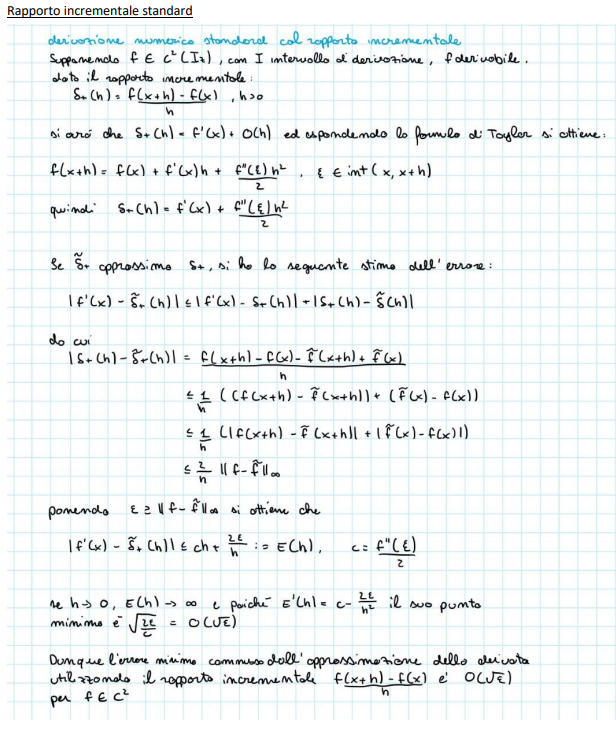 Rapporto incrementale standard
derivazione numerica standard col rapporto incrementale
Supponendo f ∈ C²(Iₓ), con I intervallo di derivazione, f derivabile.
dato il rapporto incrementale:
δ₊(h) = f(x+h) - f(x) / h , h>0
si avrà che δ₊(h) = f'(x) + O(h) ed espandendo la formula di Taylor si ottiene:
f(x+h) = f(x) + f'(x)h + f''(ξ)h² / 2 , ξ ∈ int(x, x+h)
quindi δ₊(h) = f'(x) + f''(ξ)h² / 2
Se δ̃₊ approssima δ₊, si ha la seguente stima dell'errore:
|f'(x) - δ̃₊(h)| ≤ |f'(x) - δ₊(h)| + |δ₊(h) - δ̃(h)|
da cui
|δ₊(h) - δ̃₊(h)| = f(x+h) - f(x) - f̃(x+h) + f̃(x) / h
≤ 1/h ((f(x+h) - f̃(x+h)) + (f̃(x) - f(x))
≤ 1/h (|f(x+h) - f̃(x+h)| + |f̃(x) - f(x)|)
≤ 2/h ||f - f̃||∞
ponendo ε ≥ ||f - f̃||∞ si ottiene che
|f'(x) - δ̃₊(h)| ≤ ch + 2ε/h := E(h), c = f''(ξ) / 2
se h → 0, E(h) → ∞ e poiché E'(h) = c - 2ε/h² il suo punto
minimo è √(2ε/c) = O(√ε)
Dunque l'errore minimo commesso dall'approssimazione della derivata
utilizzando il rapporto incrementale f(x+h) - f(x) / h è O(√ε)
per f ∈ C²